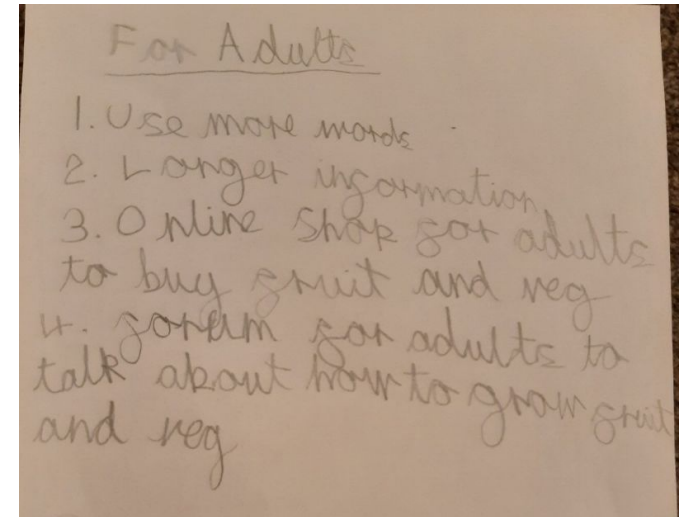 For Adults
1. Use more words
2. Longer information
3. Online shop for adults
to buy fruit and veg
4. forum for adults to
talk about how to grow fruit
and veg